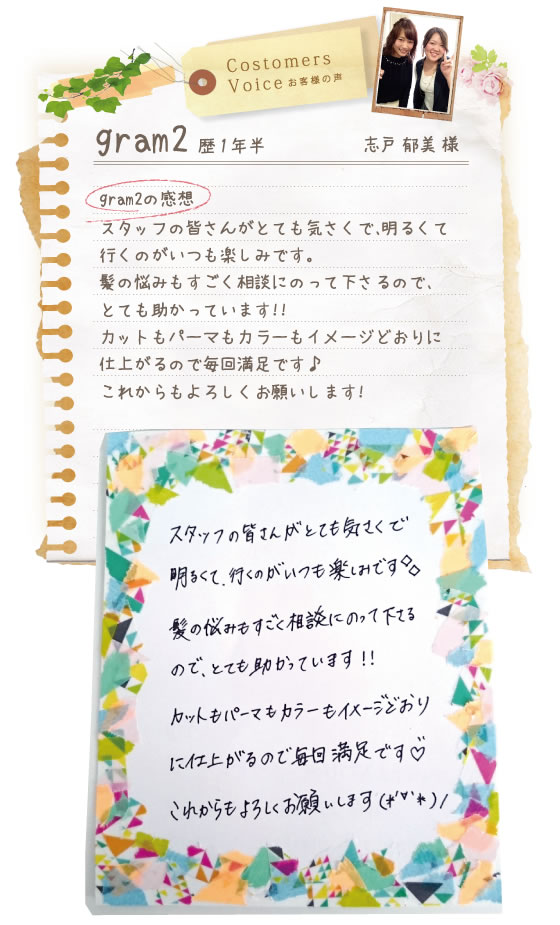 Costomers
Voice お客様の声
gram2 歴1年半 志戸 郁美 様
gram2の感想
スタッフの皆さんがとても気さくで、明るくて
行くのがいつも楽しみです。
髪の悩みもすごく相談にのって下さるので、
とても助かっています!!
カットもパーマもカラーもイメージどおりに
仕上がるので毎回満足です♪
これからもよろしくお願いします!
スタッフの皆さんがとても気さくで
明るくて、行くのがいつも楽しみです◇◇
髪の悩みもすごく相談にのって下さる
ので、とても助かっています!!
カットもパーマもカラーもイメージどおり
に仕上がるので毎回満足です♡
これからもよろしくお願いします(*'∀'*)/